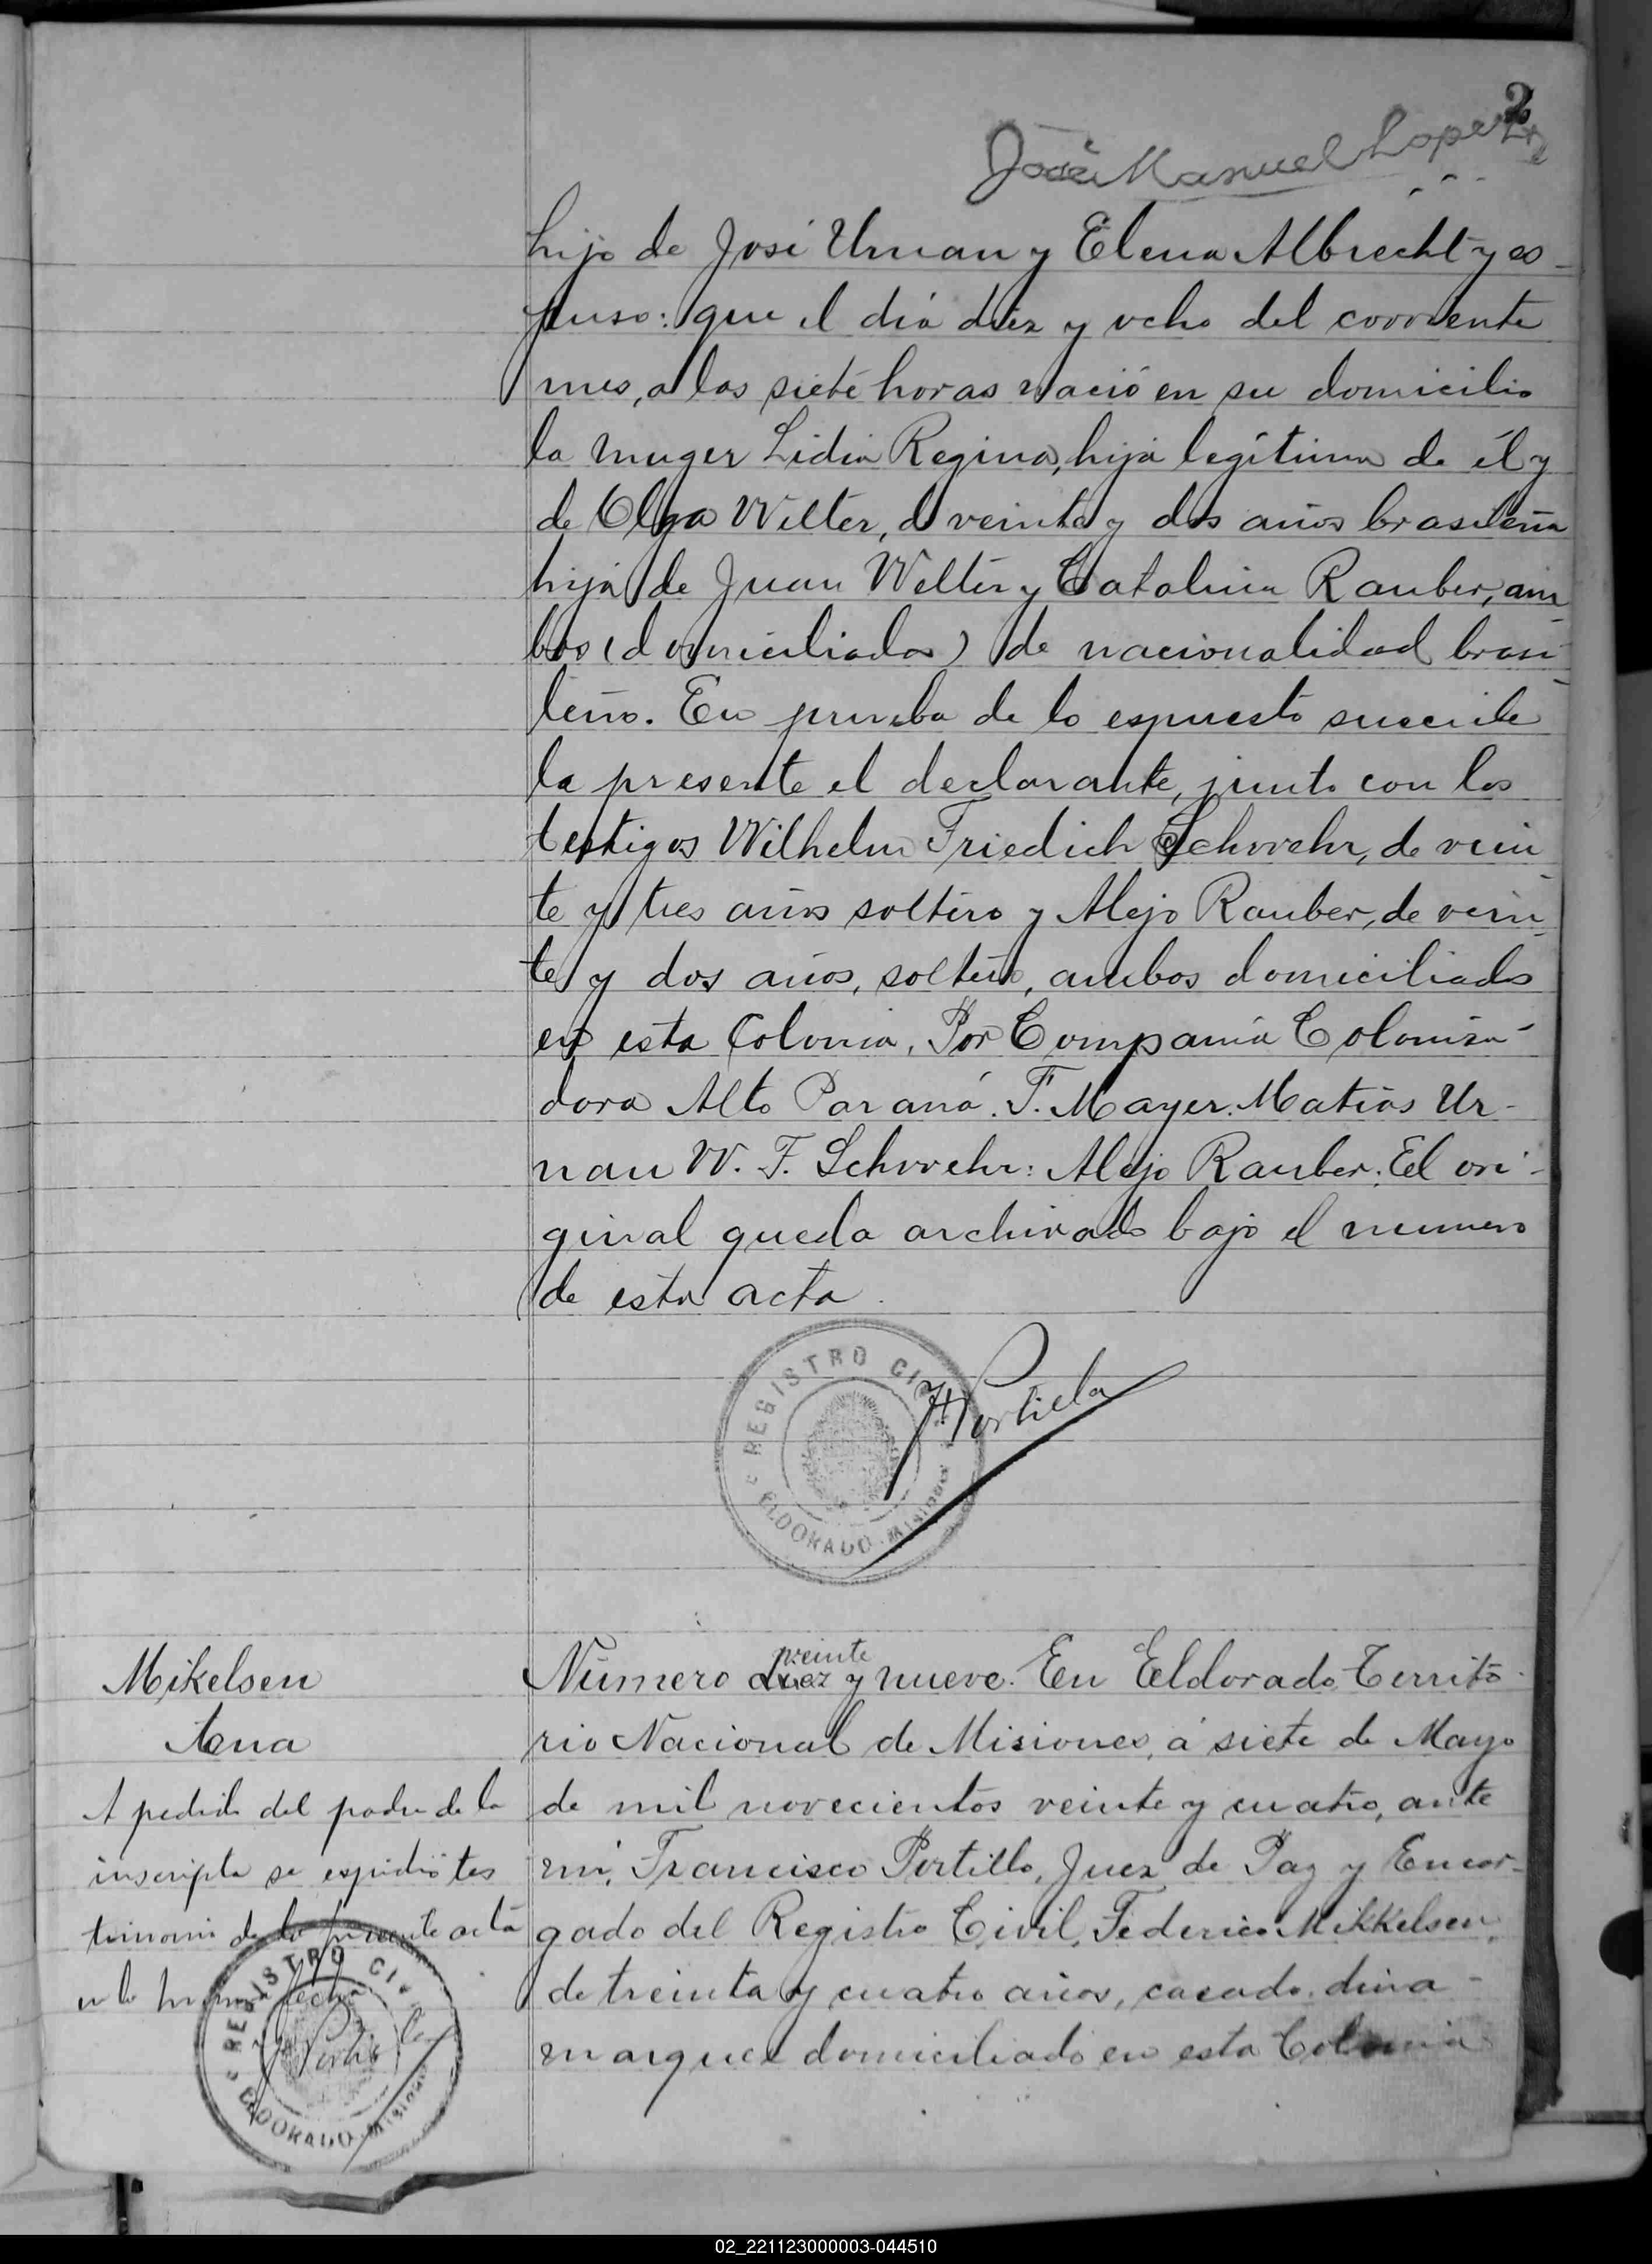 2
José Manuel Lopez
hijo de José Urnau y Elena Albrecht y es-
puso: que el dia diez y ocho del corriente
mes, a las siete horas nació en su domicilio
la muger Lidia Regina, hija legítima de él y
de Olga Welter, de veinte y dos años brasileña
hija de Juan Welter y Catalina Rauber, am-
bos (domiciliados) de nacionalidad brasi-
leño. En prueba de lo espuesto suscribe
la presente el declarante, junto con los
testigos Wilhelm Friedich Schwehr, de vein-
te y tres años soltero y Alejo Rauber, de vein-
te y dos años, soltero, ambos domiciliados
en esta Colonia, Por Compania Colonisa-
dora Alto Paraná. F. Mayer. Matias Ur-
nau W. F. Schwehr: Alejo Rauber. El ori-
ginal queda archivado bajo el numero
de esta acta.
REGISTRO CIVIL
ELDORADO Misiones
FPortillo
Mikelsen
Ana
A pedido del padre de la
inscripta se espidió tes
timonio de la presente acta
en la misma fecha
FPortillo
REGISTRO CIVIL
ELDORADO Misiones
veinte
Número diez y nueve. En Eldorado Territo-
rio Nacional de Misiones, á siete de Mayo
de mil novecientos veinte y cuatro, ante
mi, Francisco Portillo, Juez de Paz y Encar-
gado del Registro Civil, Federico Mikkelsen,
de treinta y cuatro años, casado, dina-
marques domiciliado en esta Colonia
02_221123000003-044510